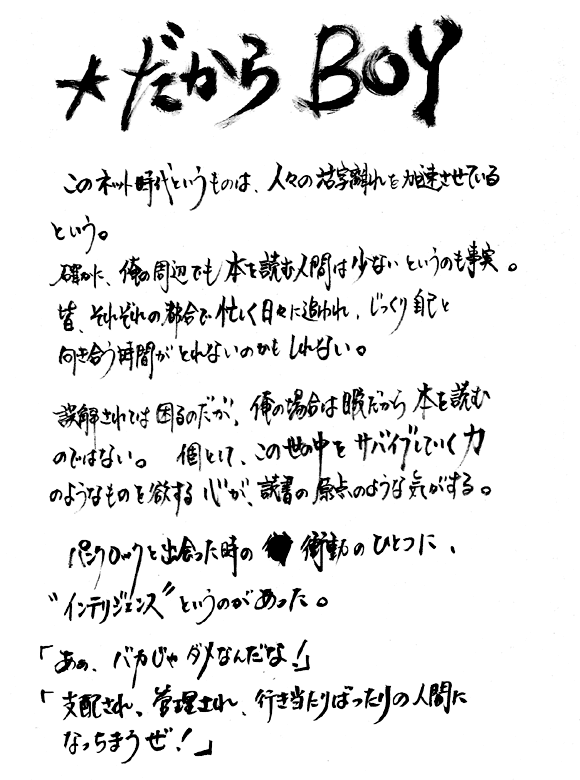 ★だから BOY
このネット時代というものは、人々の活字離れを加速させている
という。
確かに、俺の周辺でも本を読む人間は少ないというのも事実。
皆、それぞれの都合で忙しく日々に追われ、じっくり自己と
向き合う時間がとれないのかもしれない。
誤解されては困るのだが、俺の場合は暇だから本を読む
のではない。 個として、この世の中をサバイブしていく力
のようなものを欲する心が、読書の原点のような気がする。
パンクロックと出会った時の 衝動のひとつに、
“インテリジェンス”というのがあった。
「あぁ、バカじゃダメなんだな！」
「支配され、管理され、行き当たりばったりの人間に
なっちまうぜ！」